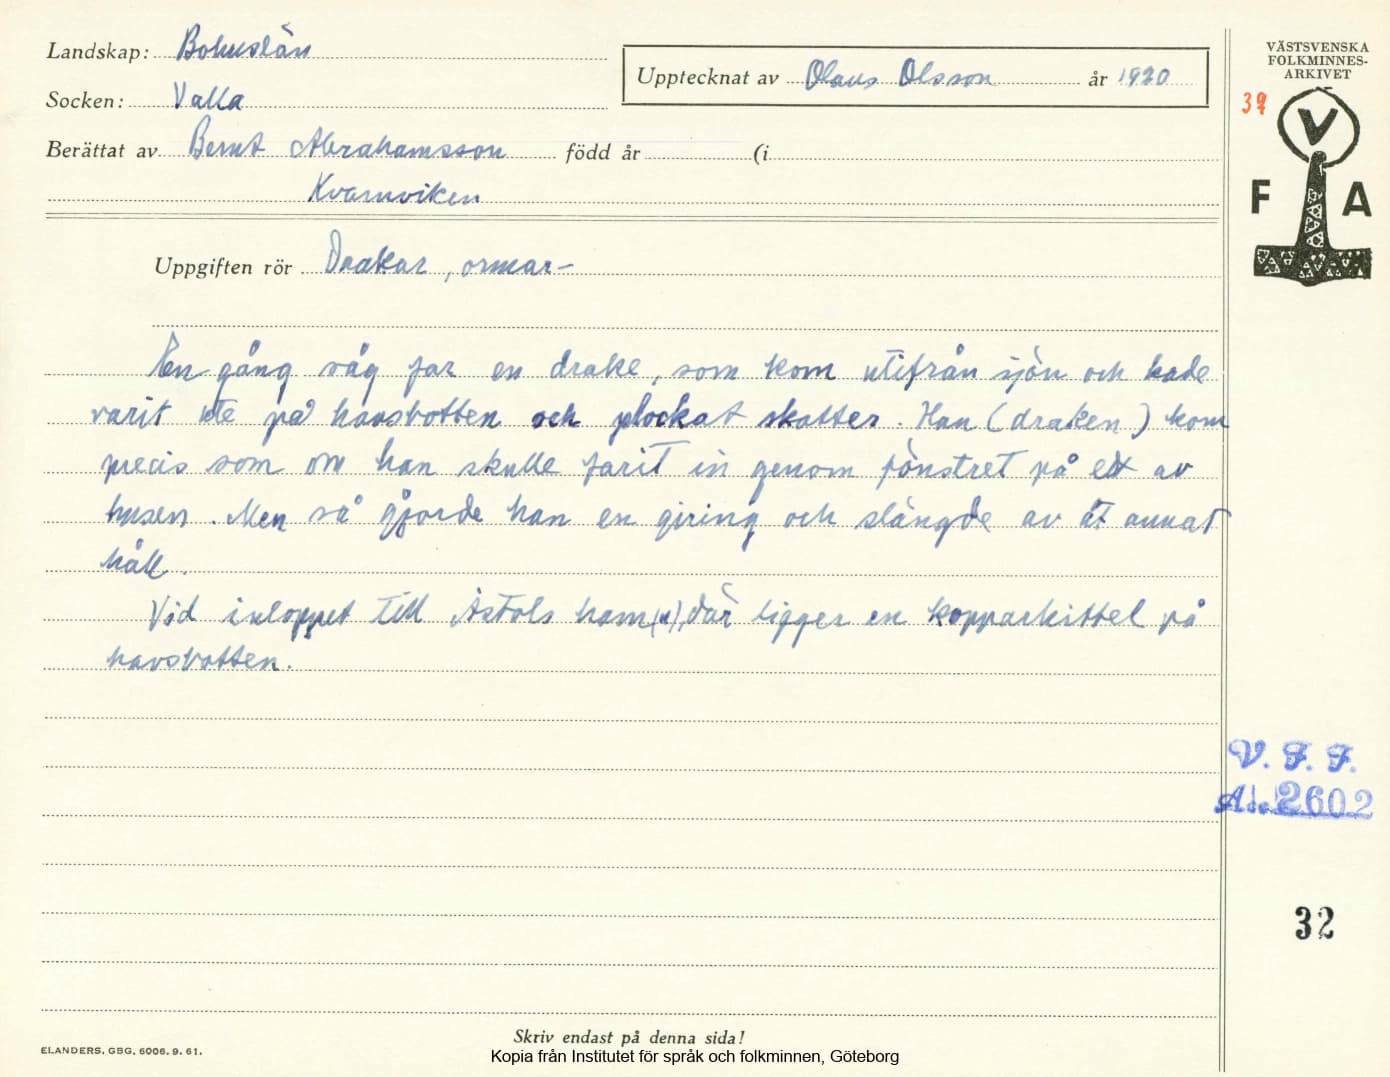 Landskap: Bohuslän
Upptecknat av Olaus Olsson år 1920
Socken: Valla
Berättat av Bernt Abrahamsson född år (i
Kvarnviken
VÄSTSVENSKA
FOLKMINNES-
ARKIVET
39
V
F A
Uppgiften rör Drakar, ormar-
En gång såg far en drake, som kom utifrån sjön och hade
varit ute på havsbotten och plockat skatter. Han (draken) kom
precis som om han skulle farit in genom fönstret på ett av
husen. Men så gjorde han en giring och slängde av åt annat
håll.
Vid inloppet till Åstols hamn(n), där ligger en kopparkittel på
havsbotten.
V. F. F.
Acc. 2602
32
Skriv endast på denna sida!
ELANDERS, GBG, 6006. 9. 61.
Kopia från Institutet för språk och folkminnen, Göteborg